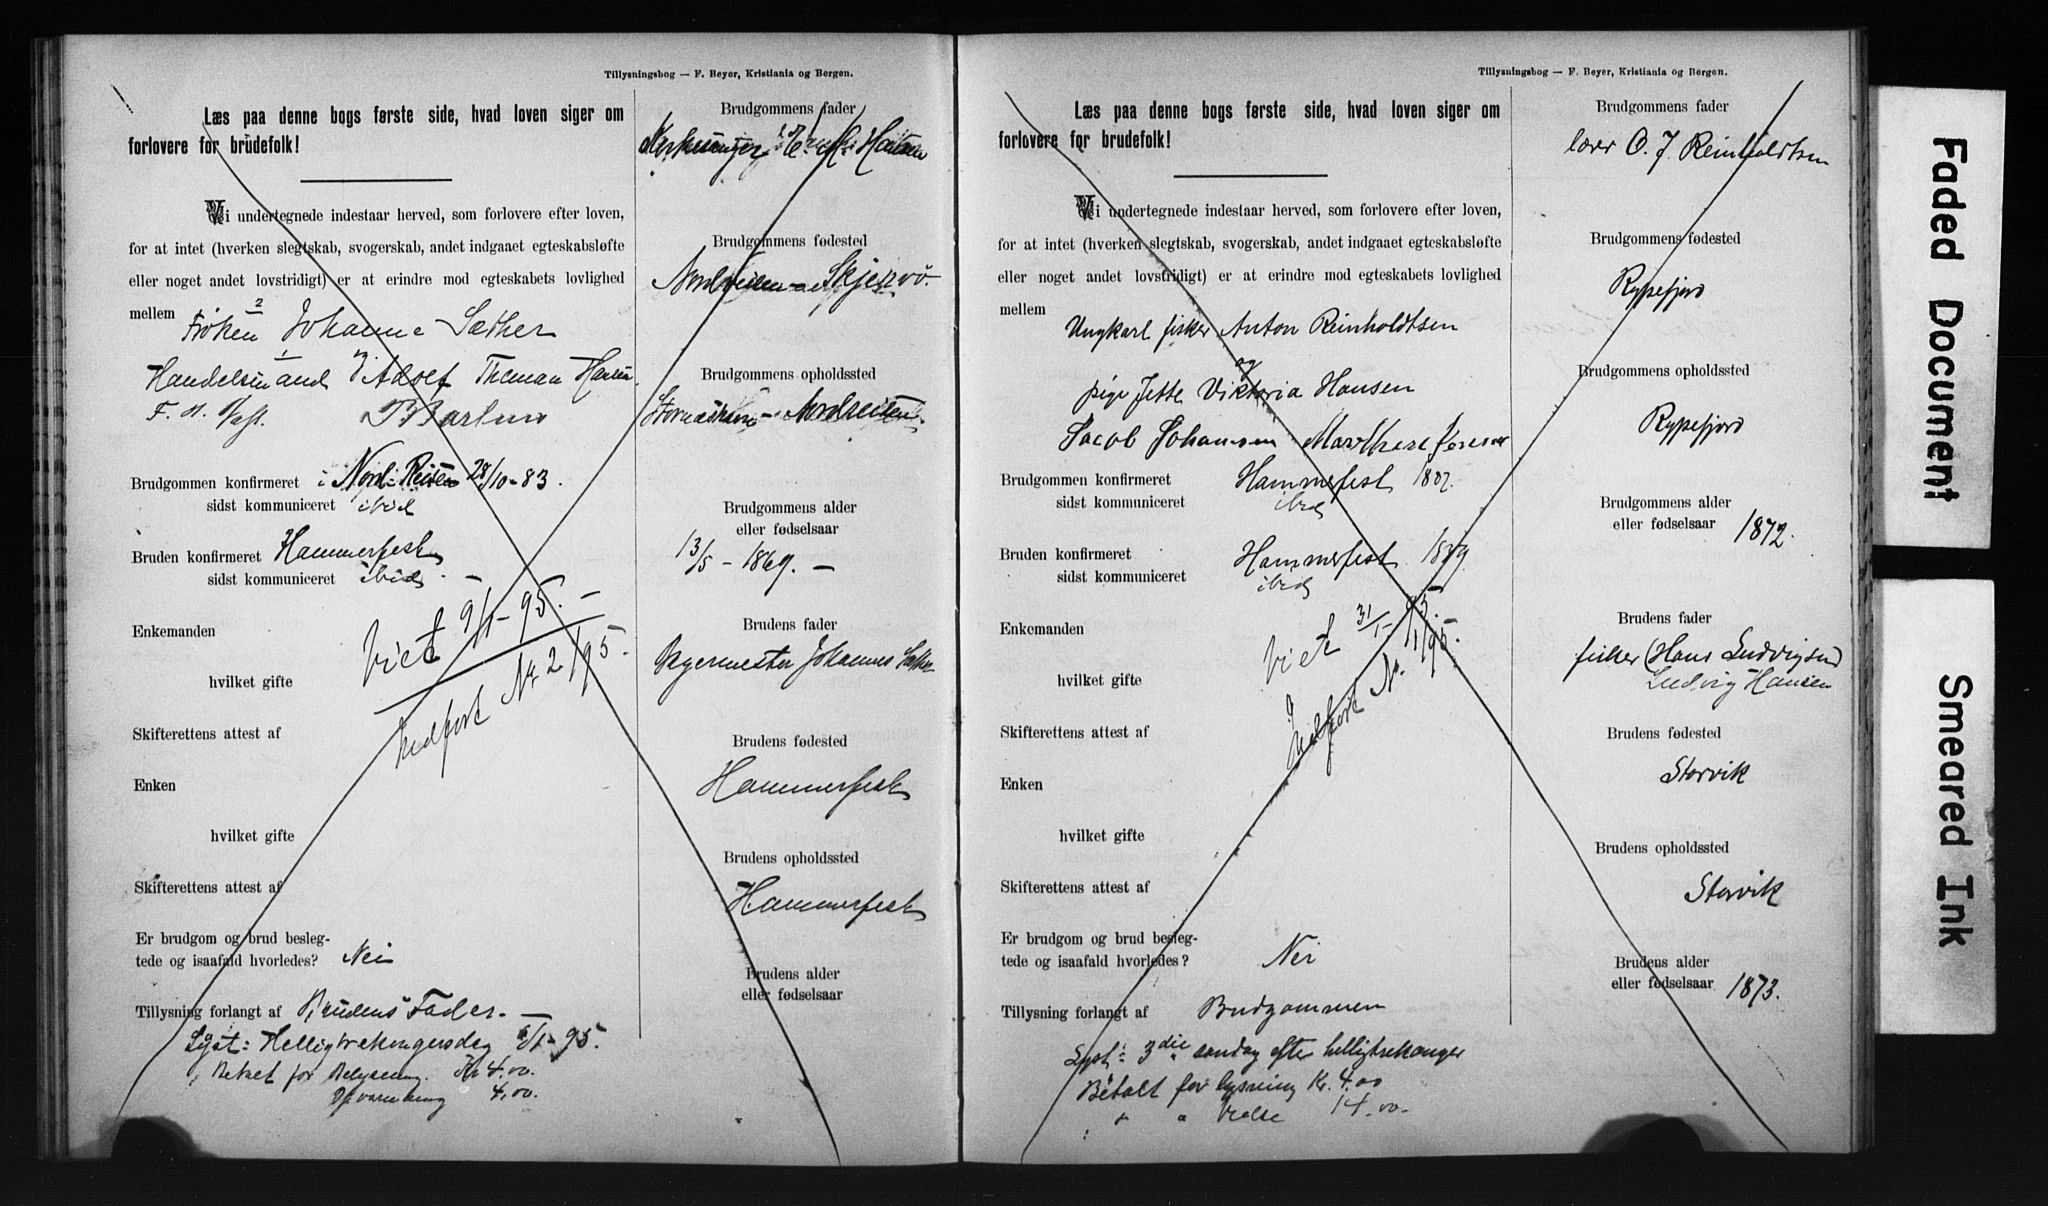 Tillysningsbog — F. Beyer, Kristiania og Bergen.
Læs paa denne bogs første side, hvad loven siger om
forlovere for brudefolk!
Vi undertegnede indestaar herved, som forlovere efter loven,
for at intet (hverken slegtskab, svogerskab, andet indgaaet egteskabsløfte
eller noget andet lovstridigt) er at erindre mod egteskabets lovlighed
mellem
2
Frøken Johanne Sæther
1
Handelsmand Adolf Thomas Hansen
Brudgommen konfirmeret i Nord-Reisen 28/10-83.
sidst kommuniceret ibid
Bruden konfirmeret Hammerfest
sidst kommuniceret ibid.
Viet 9/1-95.
Indført Nr. 2/95.
Enkemanden
hvilket gifte
Skifterettens attest af
Enken
hvilket gifte
Skifterettens attest af
Er brudgom og brud besleg-
tede og isaafald hvorledes? Nei
Tillysning forlangt af Brudens Fader.
Lyst: Helligtrekongersdag 6/1-95.
Betalt for Kr 4.00.
4,00.
Brudgommens fader
Hansen
Brudgommens fødested
Nordreisen Skjervö.
Brudgommens opholdssted
Nordreisen.
Brudgommens alder
eller fødselsaar
13/5-1869.
Brudens fader
Johannes Sæther
Brudens fødested
Hammerfest
Brudens opholdssted
Hammerfest
Brudens alder
eller fødselsaar
Tillysningsbog — F. Beyer, Kristiania og Bergen.
Læs paa denne bogs første side, hvad loven siger om
forlovere for brudefolk!
Vi undertegnede indestaar herved, som forlovere efter loven,
for at intet (hverken slegtskab, svogerskab, andet indgaaet egteskabsløfte
eller noget andet lovstridigt) er at erindre mod egteskabets lovlighed
mellem
Ungkarl fisker Anton Reinholdtsen
og
pige Jette Viktoria Hansen
Jacob Johansen
Brudgommen konfirmeret Hammerfest 1887.
sidst kommuniceret ibid
Bruden konfirmeret Hammerfest 1889.
sidst kommuniceret ibid
Viet 31/1-95.
Indført Nr. 1/95.
Enkemanden
hvilket gifte
Skifterettens attest af
Enken
hvilket gifte
Skifterettens attest af
Er brudgom og brud besleg-
tede og isaafald hvorledes? Nei
Tillysning forlangt af Brudgommen
Lyst: 3die søndag efter helligtrekonger
Betalt for lysning Kr. 4.00
" " Vielse 14.00.
Brudgommens fader
O. J. Reinholdtsen
Brudgommens fødested
Rypefjord
Brudgommens opholdssted
Rypefjord
Brudgommens alder
eller fødselsaar 1872.
Brudens fader
fisker (Hans Ludvigsen)
Ludvig Hansen
Brudens fødested
Storvik
Brudens opholdssted
Storvik
Brudens alder
eller fødselsaar 1873.
Faded Document
Smeared Ink